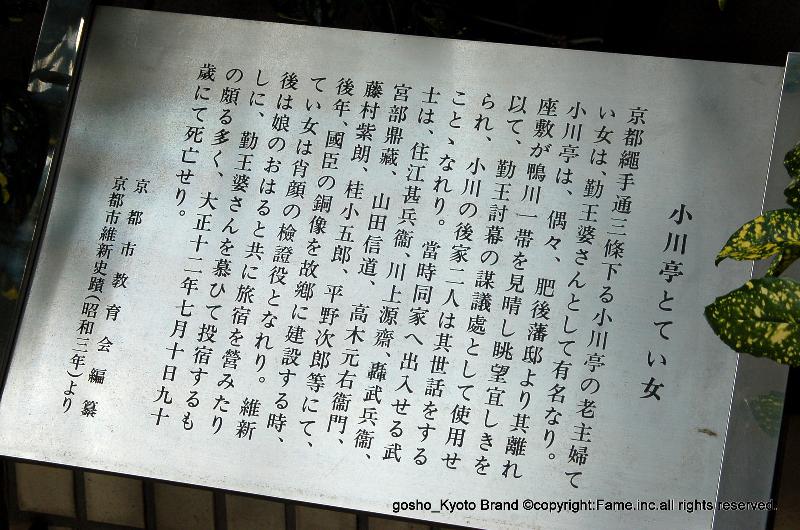 小川亭とてい女
京都繩手通三條下る小川亭の老主婦て
い女は、勤王婆さんとして有名なり。
小川亭は、偶々、肥後藩邸より其離れ
座敷が鴨川一帯を見晴し眺望宜しきを
以て、勤王討幕の謀議處として使用せ
られ、小川の後家二人は其世話をする
ことゝなれり。當時同家へ出入せる武
士は、住江甚兵衞、川上源齋、轟武兵衞、
宮部鼎藏、山田信道、高木元右衞門、
藤村紫朗、桂小五郎、平野次郎等にて、
後年、國臣の銅像を故郷に建設する時、
てい女は肖顔の檢證役となれり。維新
後は娘のおはると共に旅宿を營みたり
しに、勤王婆さんを慕ひて投宿するも
の頗る多く、大正十二年七月十日九十
歳にて死亡せり。
京都市教育会編纂
京都市維新史蹟(昭和三年)より
gosho_Kyoto Brand ©copyright:Fame.inc.all rights reserved.